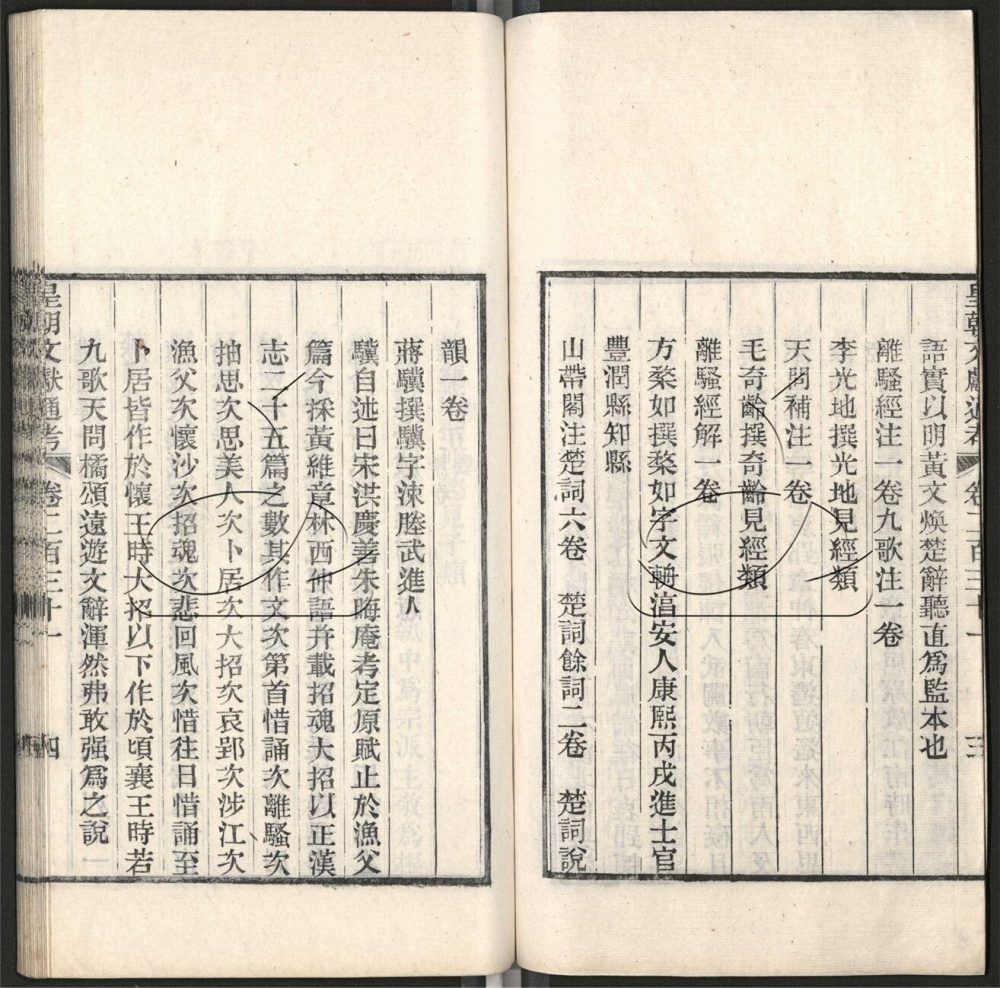 皇朝文獻通考 卷二百三十一 三
語實以明黃文煥楚辭聽直為監本也
離騷經注一卷九歌注一卷
李光地撰光地見經類
天問補注一卷
毛奇齡撰奇齡見經類
離騷經解一卷
方楘如撰楘如字文輈淯安人康熙丙戌進士官
豐潤縣知縣
山帶閣注楚詞六卷 楚詞餘詞二卷 楚詞說
韻一卷
蔣驥撰驥字涑塍武進人
驥自述曰宋洪慶善朱晦庵考定原賦止於漁父
篇今採黃維章林西仲語并載招魂大招以正漢
志二十五篇之數其作文次第首惜誦次離騷次
抽思次思美人次卜居次大招次哀郢次涉江次
漁父次懷沙次招魂次悲回風次惜往日惜誦至
卜居皆作於懷王時大招以下作於頃襄王時若
九歌天問橘頌遠遊文辭渾然弗敢强為之說一
皇朝文獻通考 卷二百三十一 四